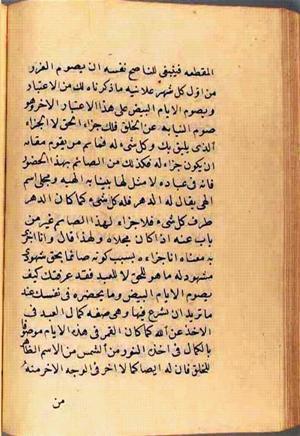 المقطعه فينبغي للناصح نفسه ان يصوم الغرر
من اول كل شهر علانيه ما ذكرناه لك من الاعتبار
ويصوم الايام البيض على هذا الاعتبار الاخر وهو
صوم النيابه عن الحق فلك جزاء الحق لا الجزاء
الذي يليق بك وكل شيء له فما ثم من يقوم مقامه
ان يكون جزاء له فكذلك من الصائم بهذا الحضور
فانه في عباده لا مثل لها بنيابه الهيه ومجلى اسم
الهي يقال له الدهر فله كل شيء كما كان الدهر
ظرف كل شيء فلا جزاء لهذا الصائم غير من
باب عنه اذ كان مجلاه ولهذا قال وانا اجزي
به معناه انا جزاءه بسبب كونه صائما بحق شهودي
مشهود له ما هو للحق لا للعبد فقد عرفتك كيف
يصوم الايام البيض وما يحضره في نفسك عند
ما تريد ان تشرع فيها وهي صفه كمال العبد في
الاخذ عن الله كما كان القمر في هذه الايام موصوفا
بالكمال في اخذه النور من الشمس من الاسم الظاهر
للخلق فان له ايضا كمالا اخر في الوجه الاخر منه
من